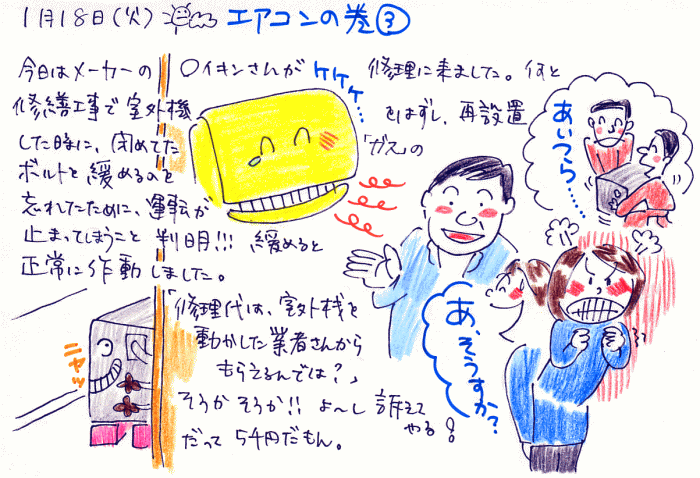 1月18日(火) エアコンの巻③
今日はメーカーの 〇イキンさんが ケケケ… 修理に来ました。何と
修繕工事で室外機をはずし、再設置
した時に、閉めてた「ガス」の
ボルトを緩めるのを
忘れてたために、運転が
止まってしまうこと 判明!!! 緩めると
正常に作動しました。
「修理代は、室外機を
動かした業者さんから
もらえるんでは?」
そうか そうか!! よ〜し 訴えて
やる!!
だって 5千円だもん。
あいつら…
あ、そうすか?
ニヤッ